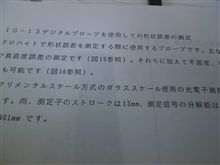 IG-13デジタルプローブを使用しての形状誤差の測定
クロハイトで形状誤差を測定する際に使用するプローブです。主な
や真直度誤差の測定です(図15参照)。それらに加えて平面度、
も可能です(図16参照)。
クリメンタルスケール方式のガラススケール使用の光電子式
す。尚、測定子のストロークは13mm、測定信号の分解能は
001mmです。